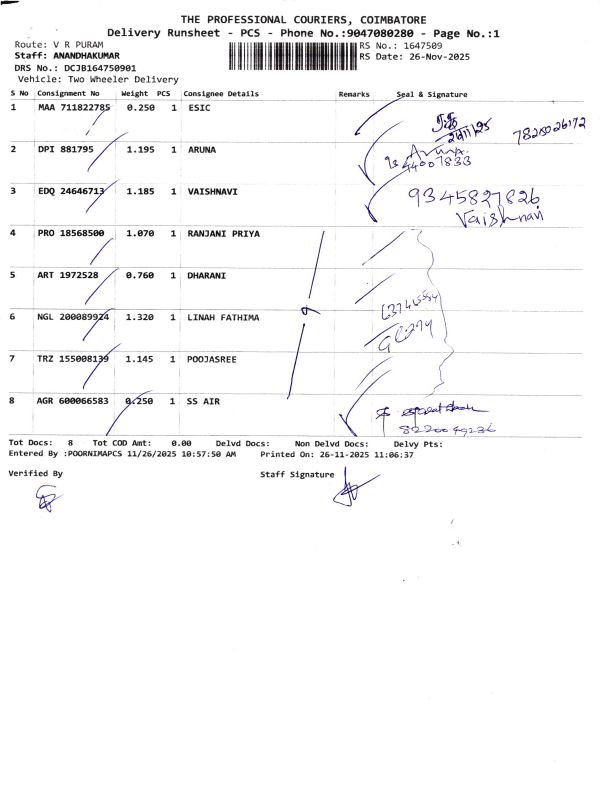 THE PROFESSIONAL COURIERS, COIMBATORE
Delivery Runsheet - PCS - Phone No.:9047080280 - Page No.:1
Route: V R PURAM RS No.: 1647509
Staff: ANANDHAKUMAR RS Date: 26-Nov-2025
DRS No.: DCJB164750901
Vehicle: Two Wheeler Delivery
S No Consignment No Weight PCS Consignee Details Remarks Seal & Signature
1 MAA 711822785 0.250 1 ESIC
26/11/25 7826026172
2 DPI 881795 1.195 1 ARUNA Aruna
93 44007833
3 EDQ 24646713 1.185 1 VAISHNAVI 9345827826
Vaishnavi
4 PRO 18568500 1.070 1 RANJANI PRIYA
5 ART 1972528 0.760 1 DHARANI
6 NGL 200089924 1.320 1 LINAH FATHIMA
7 TRZ 155008139 1.145 1 POOJASREE
8 AGR 600066583 0.250 1 SS AIR
Tot Docs: 8 Tot COD Amt: 0.00 Delvd Docs: Non Delvd Docs: Delvy Pts:
Entered By :POORNIMAPCS 11/26/2025 10:57:50 AM Printed On: 26-11-2025 11:06:37
Verified By Staff Signature